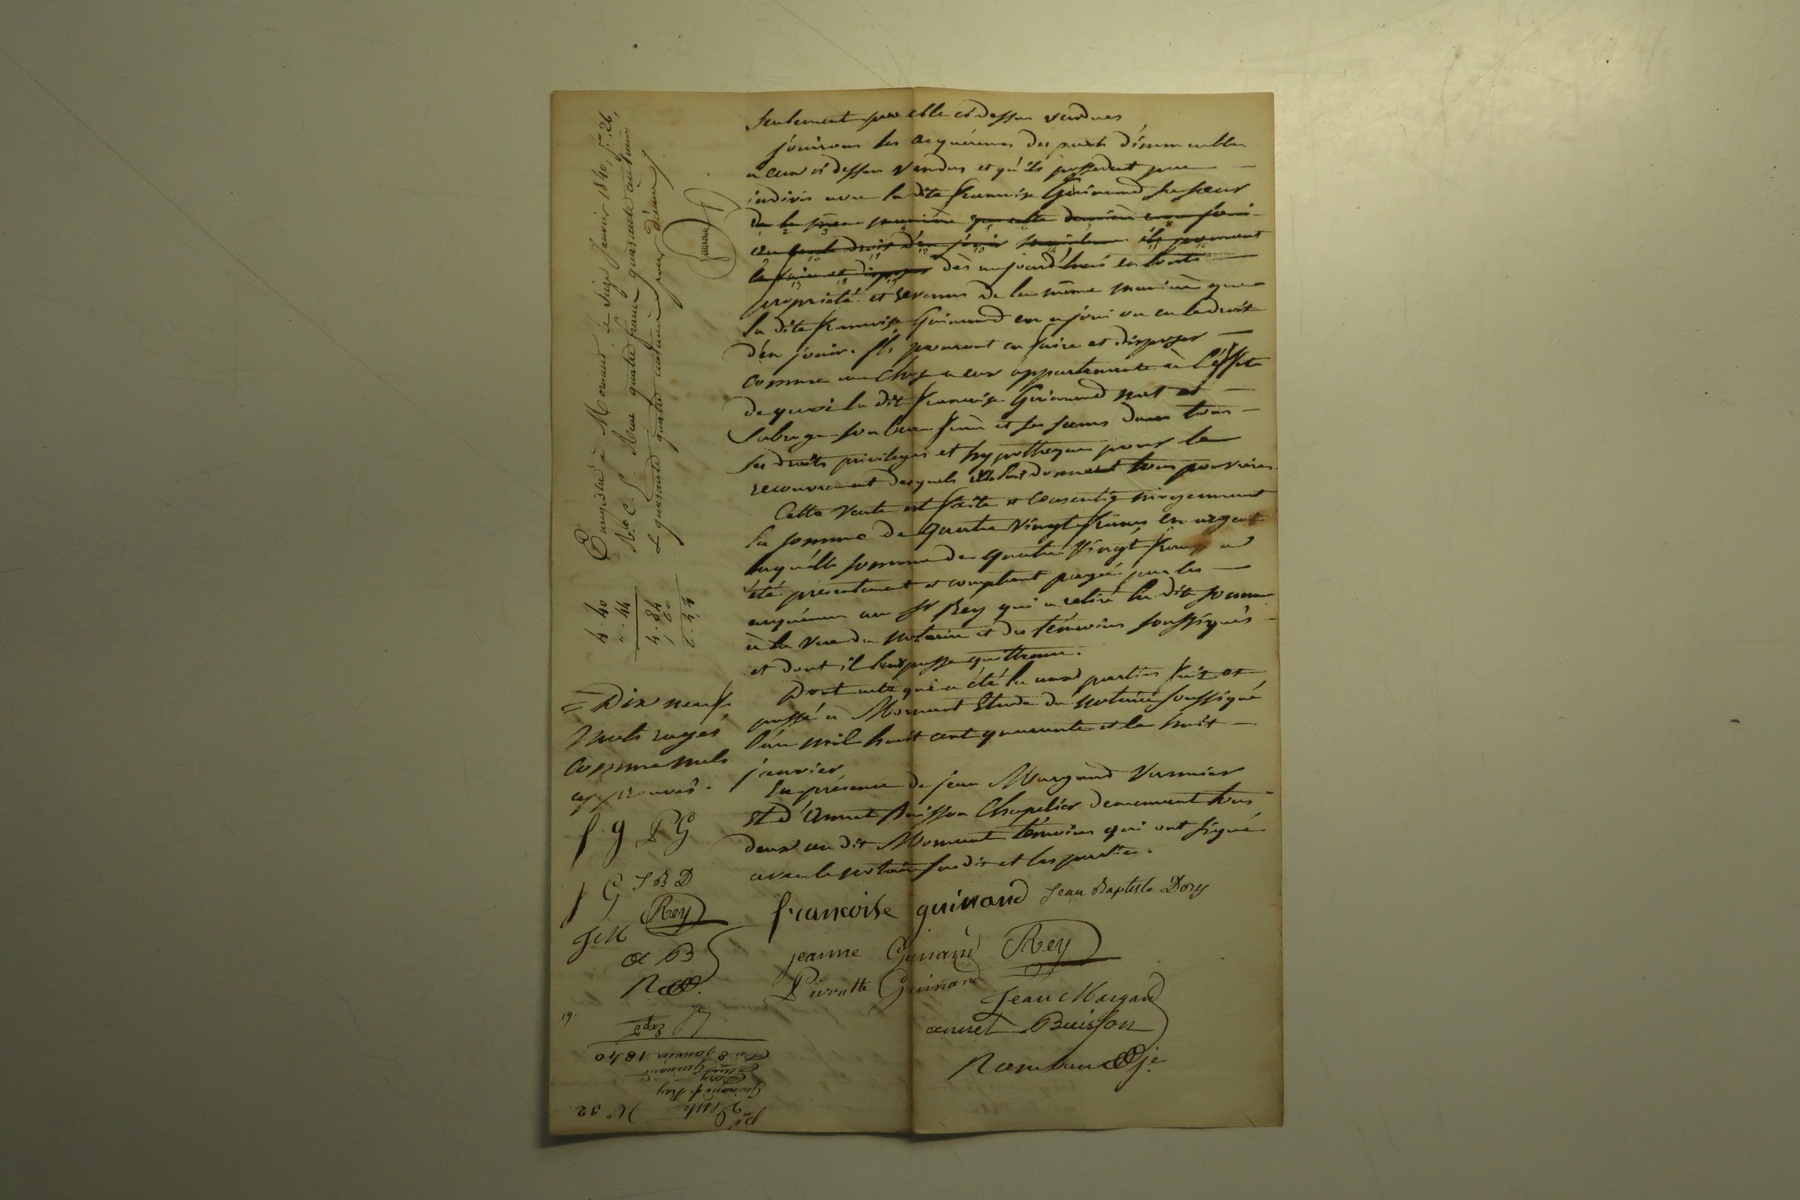 seulement par elle ci dessus vendues
jouiront les acquéreurs des parts d'immeubles
à eux ci dessus vendus et qu'ils possedent par
indivis avec la dite francoise Guinand sa sœur
de la même manière que cette dernière en a joui
le faire et disposer dès aujourd'hui en toute
propriété et revenus de la même manière que
la dite francoise Guinand en a joui ou eu le droit
d'en jouir. Ils pourront en faire et disposer
comme une chose a eux appartenante à l'éffet
de quoi la dite francoise Guinand met et
subroge son beau frère et ses sœurs dans tous
ses droits privileges et hypotheques pour le
recouvrement desquels elle leur donnent tous pouvoirs
Cette vente est faite et consentie moyennant
la somme de quatre vingt francs en argent
laquelle somme de quatre vingt francs a
été présentement et comptant payée par les
acquéreurs au Sr Rey qui a retiré la dite somme
à la vue du notaire et des témoins soussignés
et dont il leur passe quittance.
Dont acte qui a été lu aux parties fait et
passé à Mornant Etude du notaire soussigné
L'an mil huit cent quarante et le huit
janvier
En présence de jean Margand
et d'annet Buisson Chapelier demeurant tous
deux au dit Mornant témoins qui ont signé
avec le notaire susdit et les parties.
francoise guinand Jean Baptiste Dory
jeanne Guinand Rey
Pierrette Guinand
Jean Margand
annet Buisson
Enregistré à Mornant, le seize Janvier 1840, fo 26,
Ro C. 5. Reçu quatre francs quarante centimes
& quarante quatre centimes pour décime
4. 40
". 44
4. 84
= Dix neuf
mots rayés
comme nuls
approuvés.
f g PG
J G J B D
Rey
J M
a B
19.
Expé
Du 8 Janvier 1840
Guinand
Dory
Guinand f. Rey
Vente
No 32